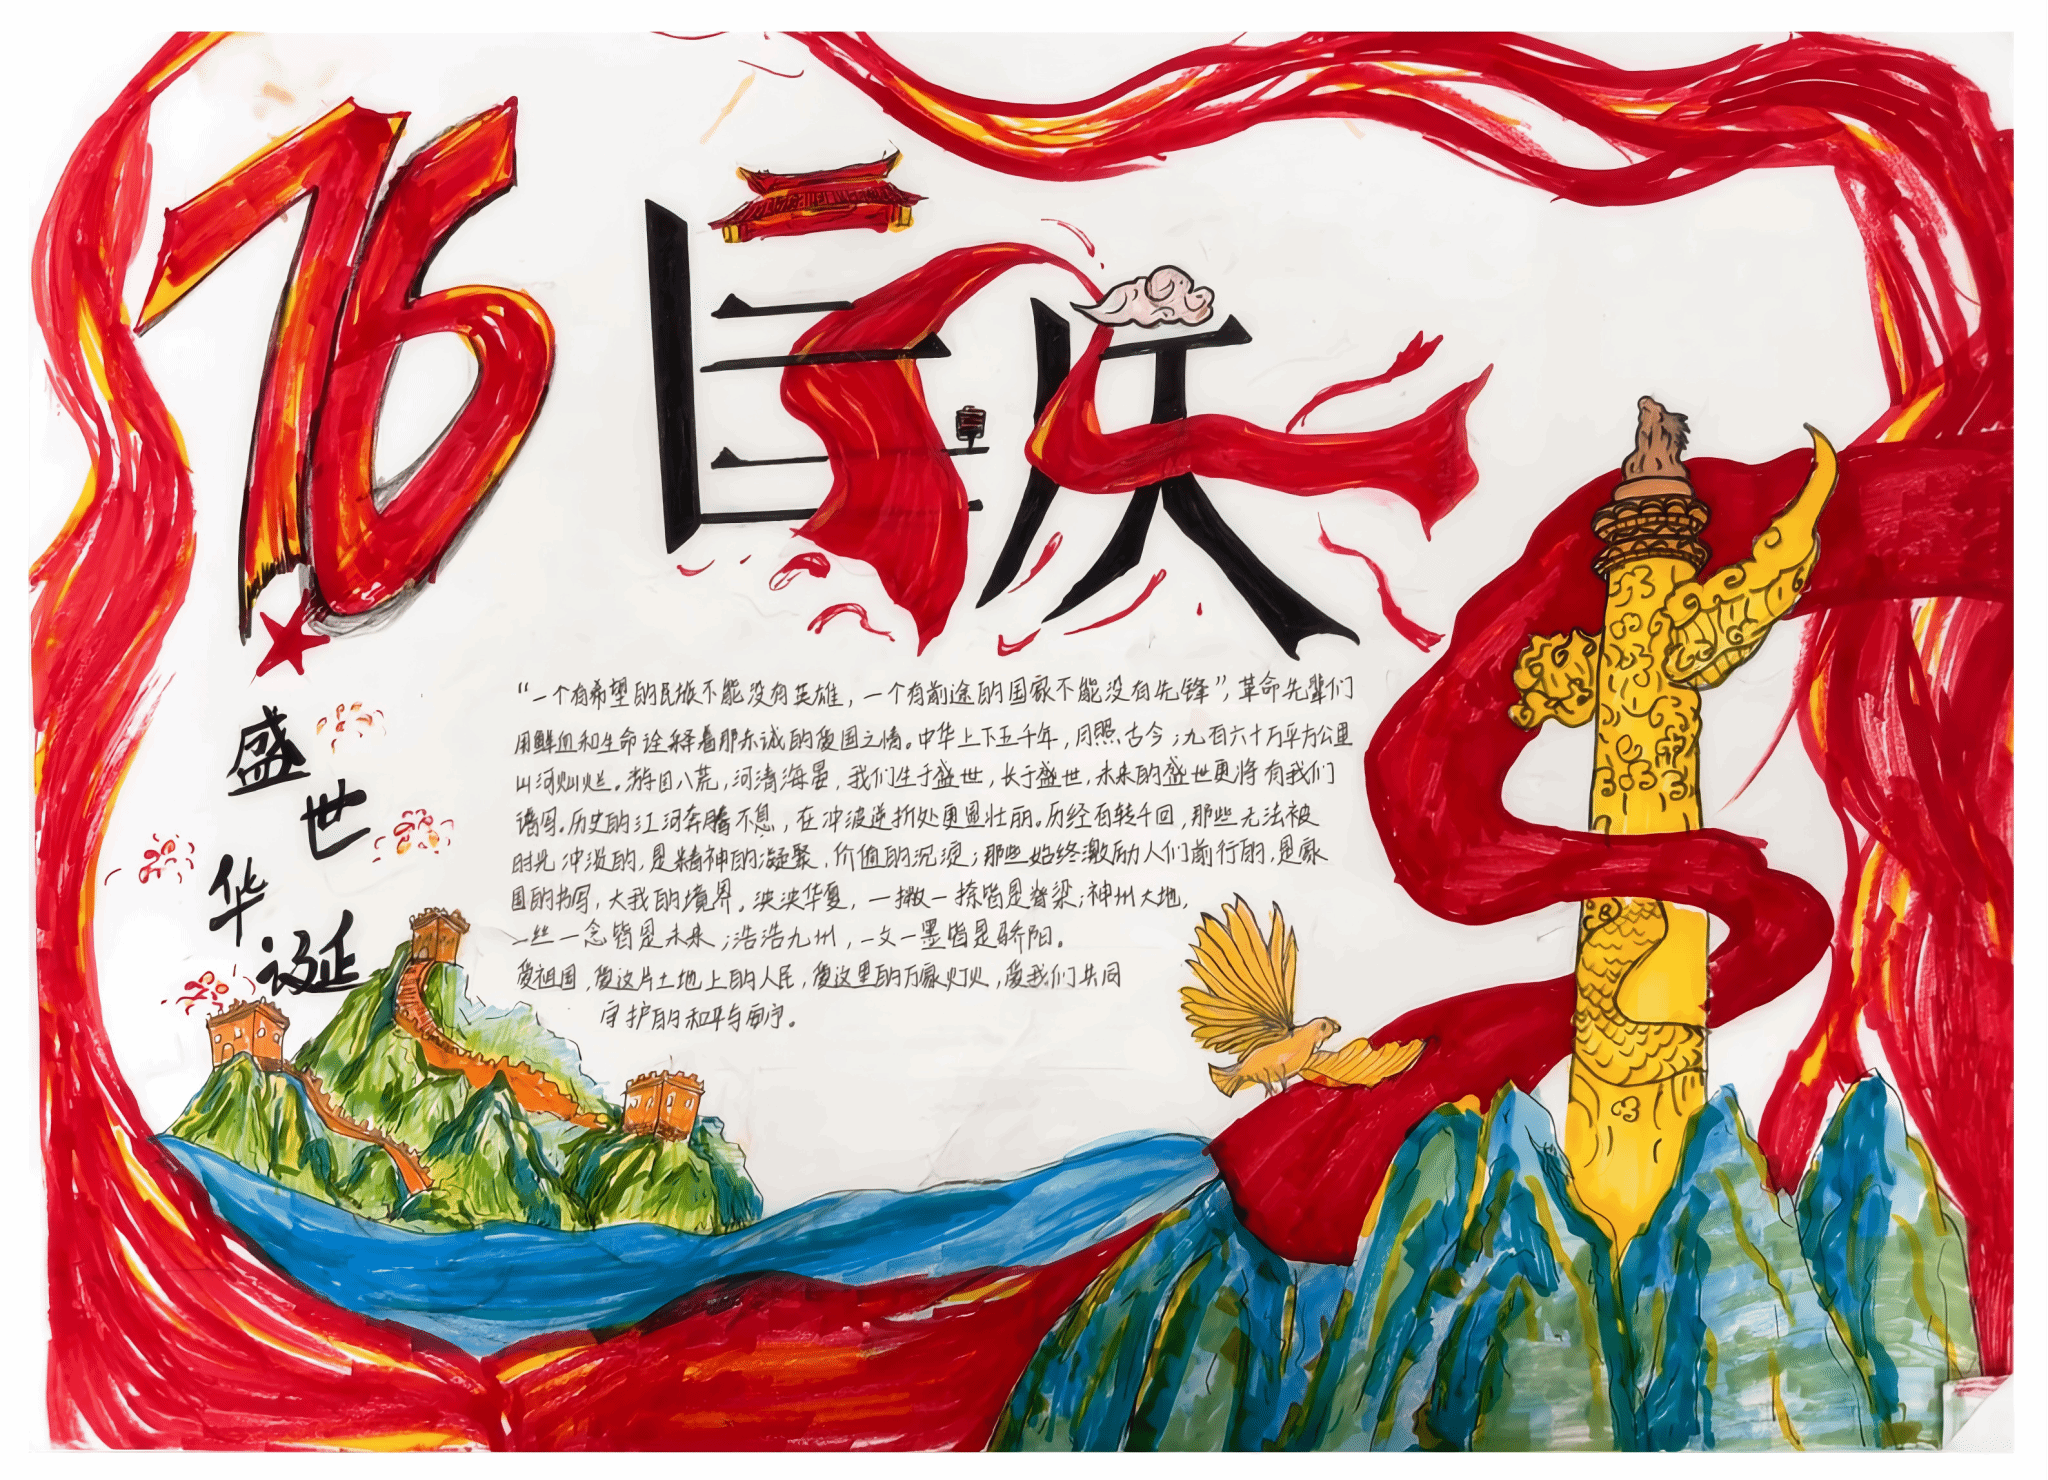 76
国庆
盛世华诞
“一个有希望的民族不能没有英雄，一个有前途的国家不能没有先锋”，革命先辈们
用鲜血和生命诠释着那赤诚的爱国之情。中华上下五千年，月照古今；九百六十万平方公里
山河灿烂。游目八荒，河清海晏，我们生于盛世，长于盛世，未来的盛世更将有我们
谱写。历史的江河奔腾不息，在冲波逆折处更显壮丽。历经百转千回，那些无法被
时光冲淡的，是精神的凝聚，价值的沉淀；那些始终激励人们前行的，是家
国的书写，大我的境界。泱泱华夏，一撇一捺皆是脊梁；神州大地，
一丝一念皆是未来；浩浩九州，一文一墨皆是骄阳。
爱祖国，爱这片土地上的人民，爱这里的万家灯火，爱我们共同
守护的和平与安宁。